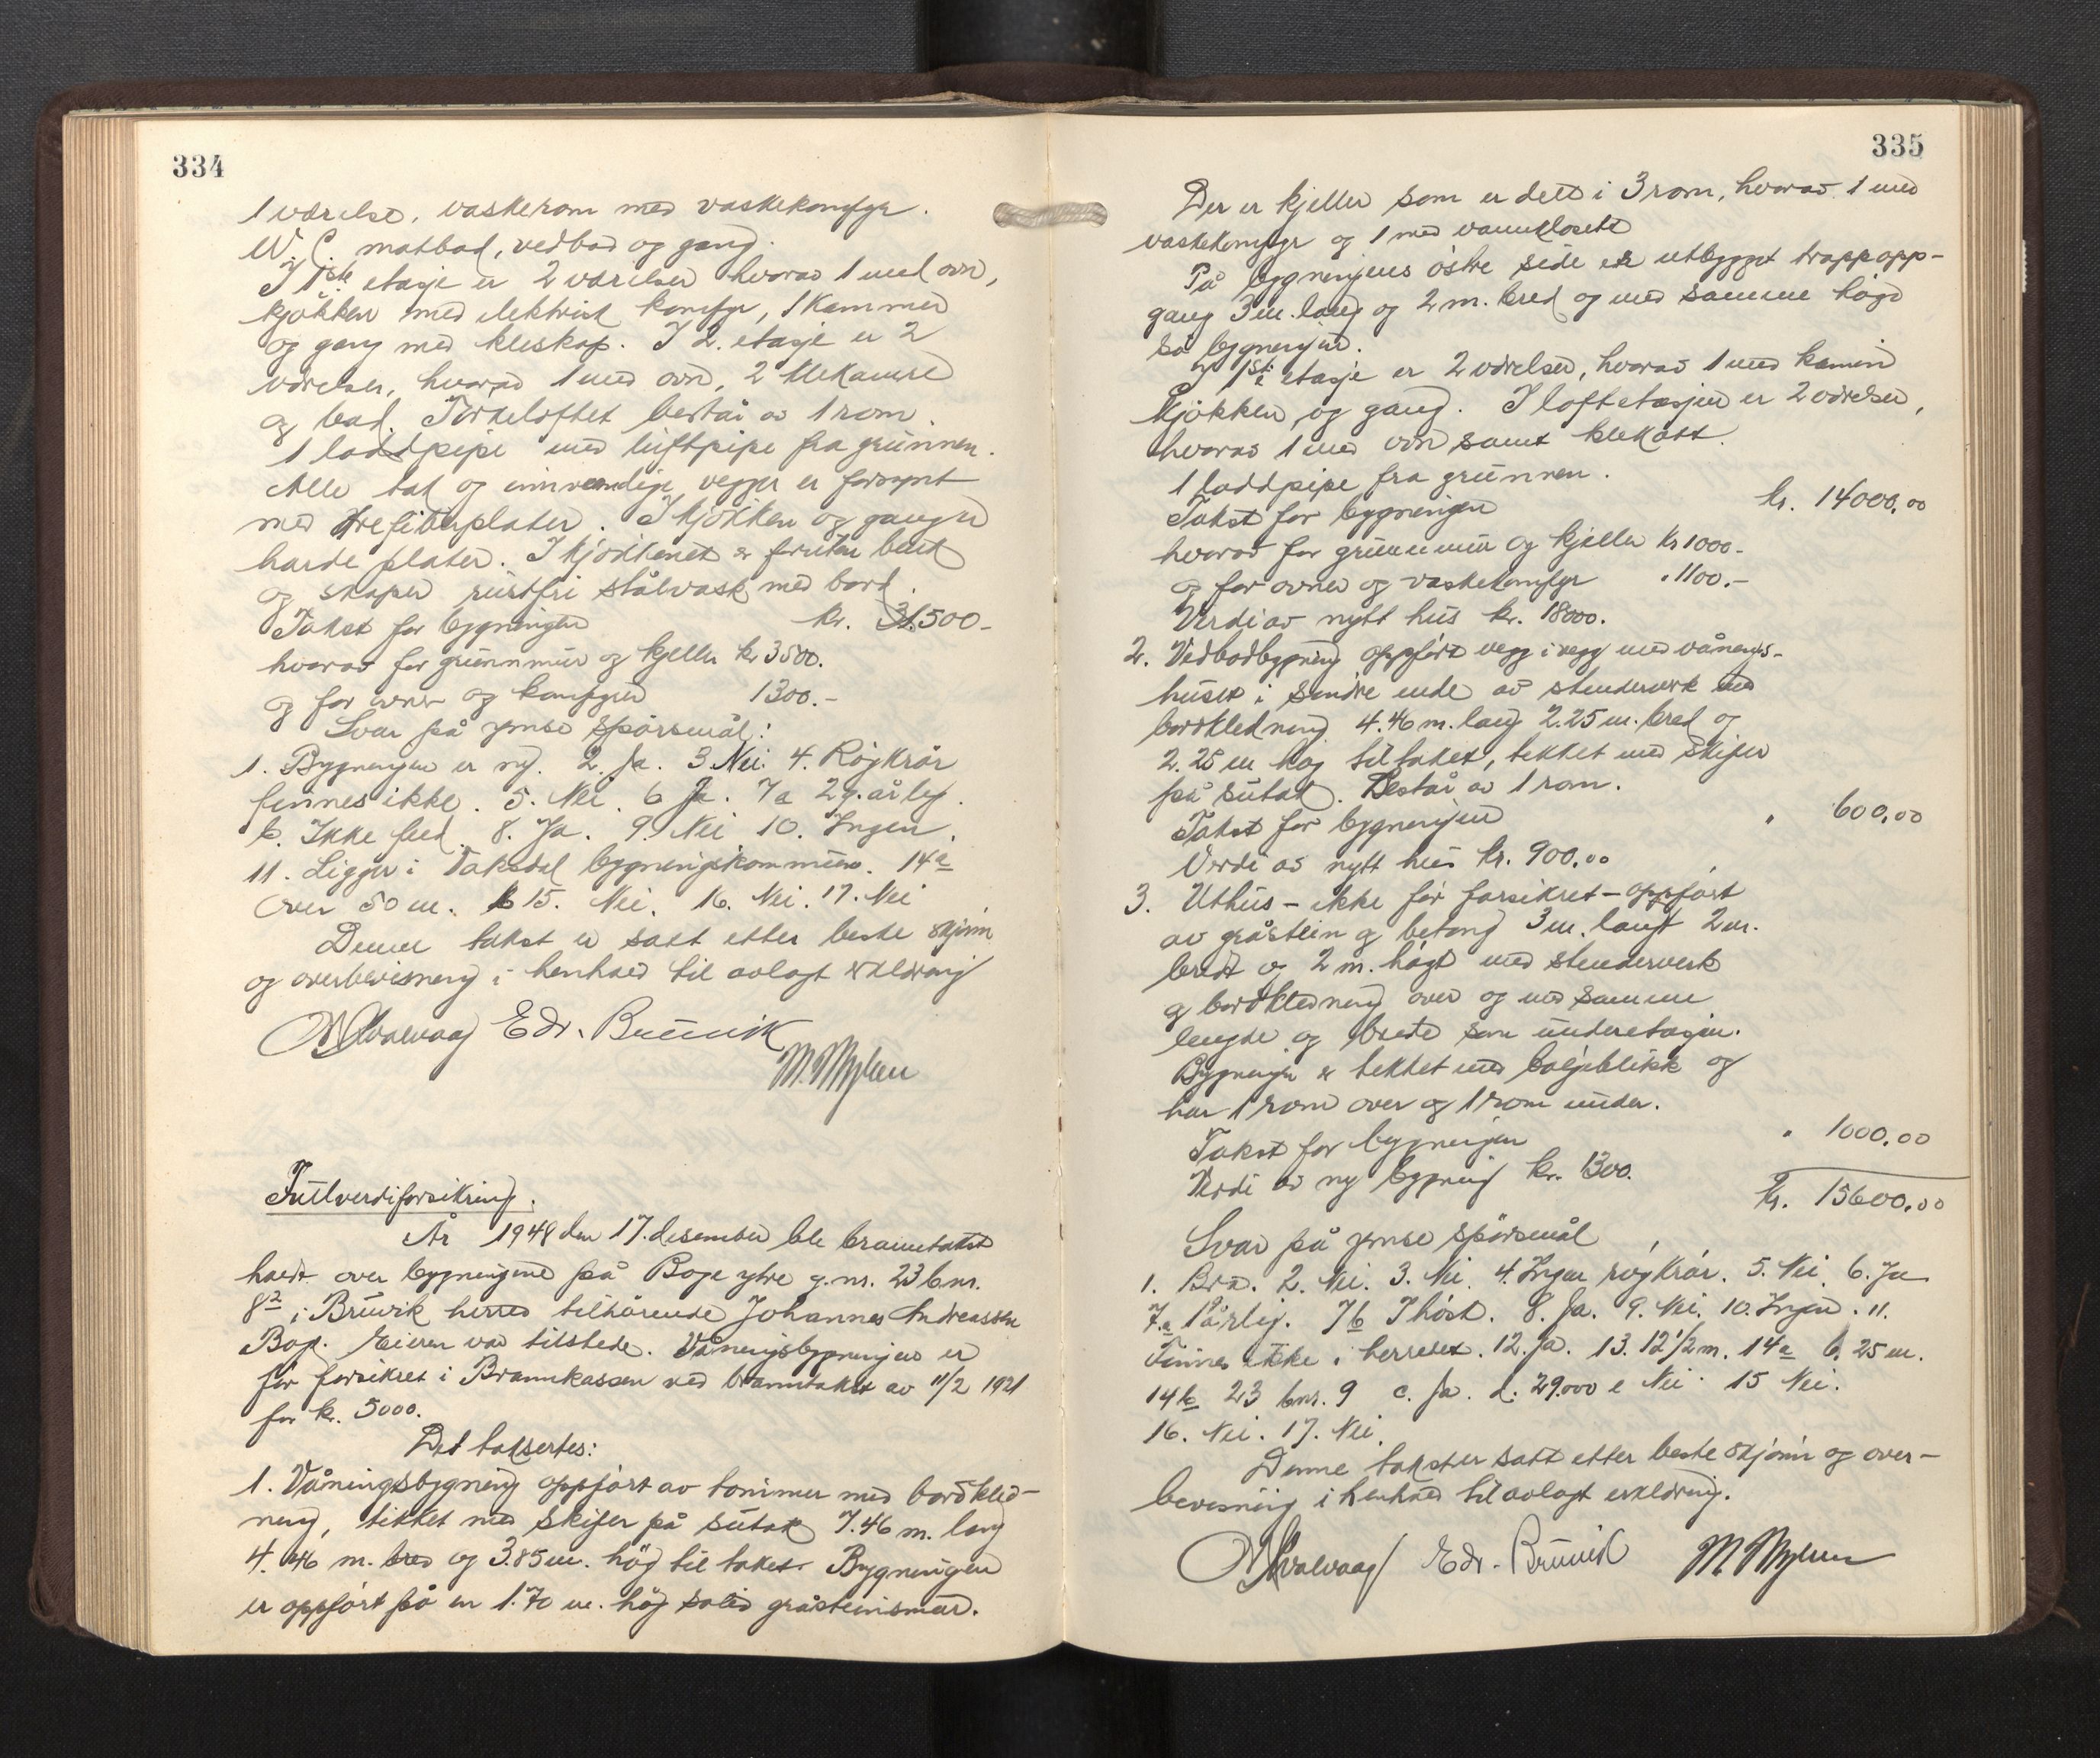 334
1 værelse, vaskerom med vaskekomfyr.
W.C. matbod, vedbod og gang.
I 1ste etasje er 2 værelser hvorav 1 med ovn,
kjøkken med elektrisk komfyr, 1 kammer
og gang med kleskap. I 2. etasje er 2
værelser, hvorav 1 med ovn, 2 klekamre
og bad. Tørkeloftet består av 1 rom.
1 loddpipe med luftpipe fra grunnen.
Alle tak og innvendige vegger er forsynt
med trefiberplater. I kjøkken og ganger
harde plater. I kjøkkenet er foruten benk
og skaper rustfri stålvask med bord.
Takst for bygningen kr. 31.500-
hvorav for grunnmur og kjeller kr 3500.
og for ovner og komfyrer 1300.-
Svar på ymse spørsmål:
1. Bygningen er ny. 2. Ja. 3. Nei. 4. Røykrør
finnes ikke. 5. Nei. 6 Ja. 7a 2 g. årleg.
b. Ikke feed. 8. Ja. 9. Nei 10. Ingen.
11. Ligger i Vaksdal bygningskommune. 14a
over 50 m. 15. Nei. 16. Nei. 17. Nei
Denne takst er satt etter beste skjønn
og overbevisning i henhold til avlagt erklæring
Edv. Bruvik
M. Mjelen
Fullverdiforsikring.
År 1948 den 17. desember ble branntakst
holdt over bygningene på Boge ytre g.nr. 23 bnr.
8² i Bruvik herred tilhørende Johannes Andreassen
Boge. Eieren var tilstede. Våningsbygningen er
før forsikret i Brannkassen ved branntakst av 11/2 1921
for kr. 5000.
Det taksertes:
1. Våningsbygning oppført av tømmer med bordkled-
ning, tekket med skifer på sutak 7.46 m. lang
4.46 m. bred og 3.85 m. høg til taket. Bygningen
er oppført på en 1.70 m. høg solid gråsteinsmur.
335
Der er kjeller som er delt i 3 rom, hvorav 1 med
vaskekomfyr og 1 med vannklosett
På bygningens østre side er utbygget trappopp-
gang 3 m. lang og 2 m. bred og med samme høgd
so bygningen.
I 1ste etasje er 2 værelser, hvorav 1 med kamin
kjøkken og gang. I loftetasjen er 2 værelser,
hvorav 1 med ovn samt klekott.
1 loddpipe fra grunnen.
Takst for bygningen kr. 14000.00
hvorav for grunnmur og kjeller kr 1000-
og for ovner og vaskekomfyr " 1100.-
Verdi av nytt hus kr. 18000.
2. Vedbodbygning oppført vegg i vegg med vånings-
huset i søndre ende av stenderverk med
bordkledning 4.46 m. lang 2.25 m. bred og
2.25 m høg til taket, tekket med skifer
på sutak. Består av 1 rom.
Takst for bygningen " 600.00
Verdi av nytt hus kr. 900.00
3. Uthus – ikke før forsikret – oppført
av gråstein og betong 3 m. langt 2 m.
bredt og 2 m. høgt med stenderverk
og bordkledning over og med samme
lengde og brede som underetasjen.
Bygningen er tekket med bølgeblikk og
har 1 rom over og 1 rom under.
Takst for bygningen " 1000.00
Verdi av ny bygning kr. 1300.
Kr. 15600.00
Svar på ymse spørsmål
1. Bra. 2. Nei. 3. Nei. 4. Ingen røykrør. 5. Nei. 6. Ja
7.a 1 g. årlig. 7b I høst. 8. Ja. 9. Nei. 10. Ingen. 11.
Finnes ikke i herredet. 12. Ja. 13. 12 1/2 m. 14a 6.25 m.
14b 23 bnr. 9 c. Ja. d. 29.000 e Nei. 15 Nei.
16. Nei. 17. Nei.
Denne takst er satt etter beste skjønn og over-
bevisning i henhold til avlagt erklæring.
Edv. Bruvik M. Mjelen